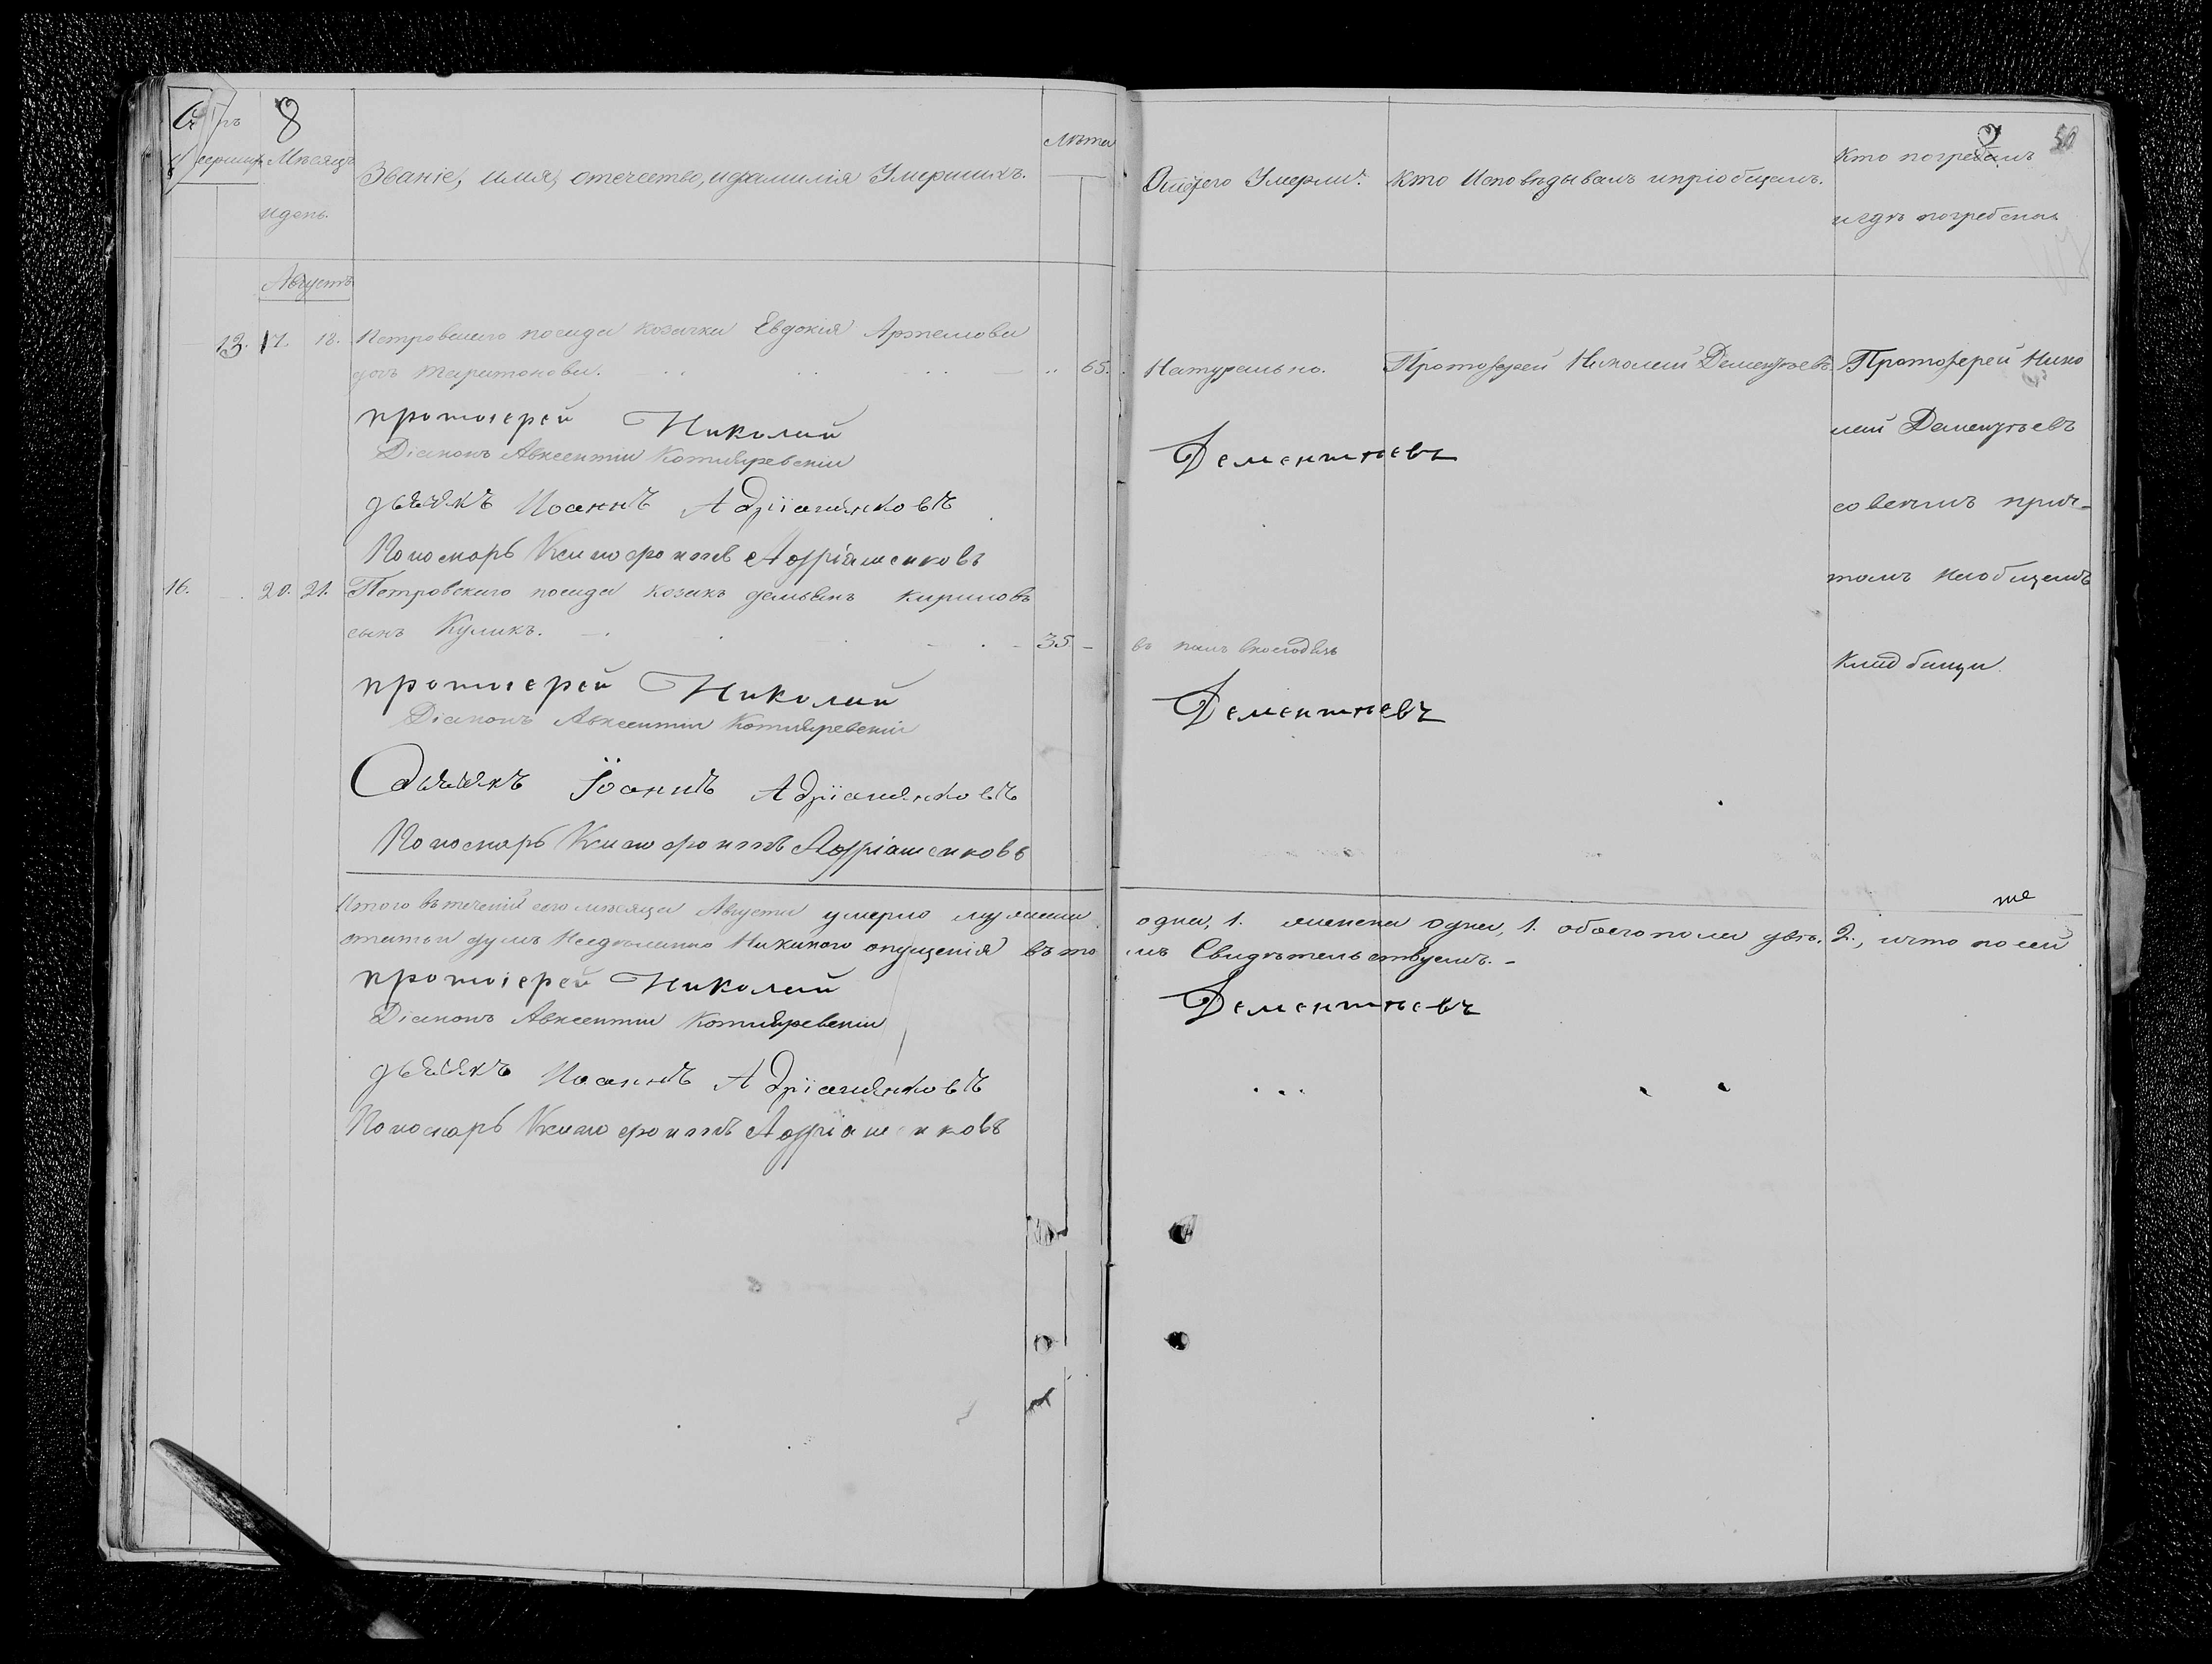 8
Мѣсяцъ
и день.
Званіе, имя, отечество, и фамилія Умершихъ.
Лѣта
Отъ чего Умерли.
Кто Исповѣдывалъ и пріобщалъ.
9
50
Кто погребалъ
и гдѣ погребены
Августъ
13. 17. 18. Петровскаго посада козачка Евдокія Артемова
дочь Таритонова. 65.
Натурально.
Протоіерей Николай Дементьевъ
Протоіерей Нико
лай Дементьевъ
со всемъ прич-
томъ на общемъ
кладбищи.
протоіерей Николай Дементьевъ
Діаконъ Авксентии Котляревскии
дьячекъ Иоаннъ Адріяшенковъ
Пономарь Ксенофонтъ Адріашенковъ
16. 20. 21. Петровскаго посада козакъ Демьянъ Кириловъ
сынъ Куликъ. 35
протоіерей Николай Дементьевъ
Діаконъ Авксентии Котляревскии
Дьячекъ Іоаннъ Адріяшенковъ
Пономарь Ксенофонтъ Адріашенковъ
Итого въ теченіи сего мѣсяца Августа умерло мужеска одна, 1. женска одна, 1. обоего пола двѣ. 2., и что по сей
же
статьи душъ Неѣдѣланно Никакого опущенія въ то мъ Свидѣтельствуемъ.-
протоіерей Николай Дементьевъ
Діаконъ Авксентии Котляревскии
дьячекъ Иоаннъ Адріяшенковъ
Пономарь Ксенофонтъ Адріашенковъ